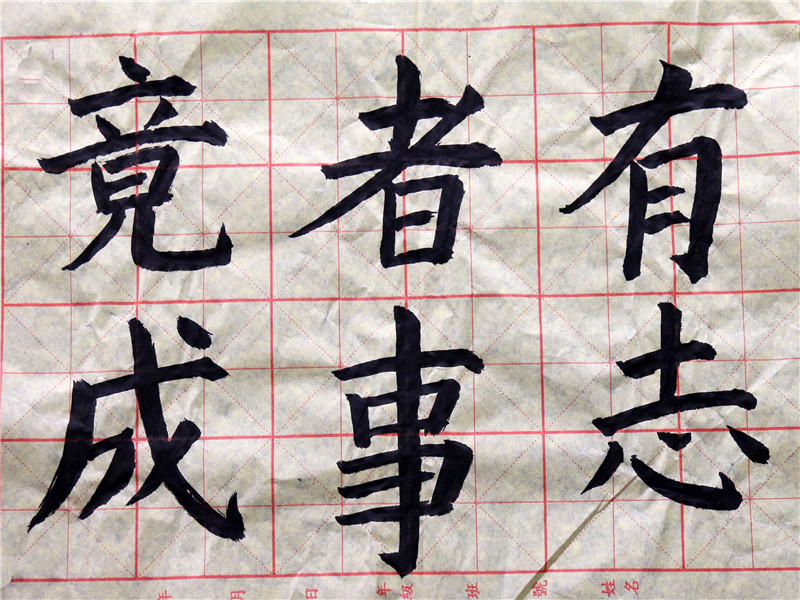 有志
者事
竟成
年 月 日 年級 班 號 姓名